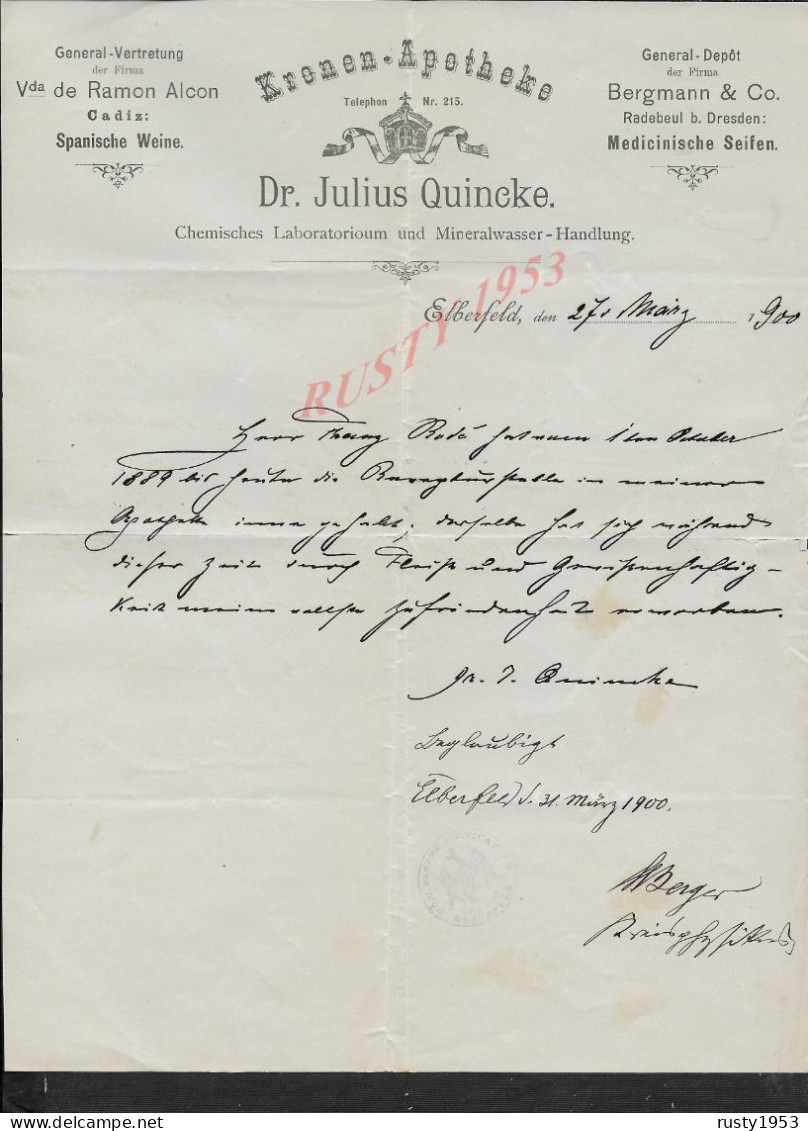 General-Vertretung
der Firma
Vda de Ramon Alcon
Cadiz:
Spanische Weine.
Kronen-Apotheke
Telephon Nr. 215.
General-Depôt
der Firma
Bergmann & Co.
Radebeul b. Dresden:
Medicinische Seifen.
Dr. Julius Quincke.
Chemisches Laboratorioum und Mineralwasser-Handlung.
RUSTY 1953
Elberfeld, den 27. März 1900
Herr Franz Rodé hat vom 1ten October
1889 bis heute die Recepturstelle in meiner
Apotheke inne gehabt; derselbe hat sich während
dieser Zeit durch Fleiß und Gewissenhaftig-
keit meine vollste Zufriedenheit erworben.
Dr. J. Quincke
Beglaubigt
Elberfeld d. 31. März 1900.
Berger
Kreisphysikus
delcampe.net
rusty1953